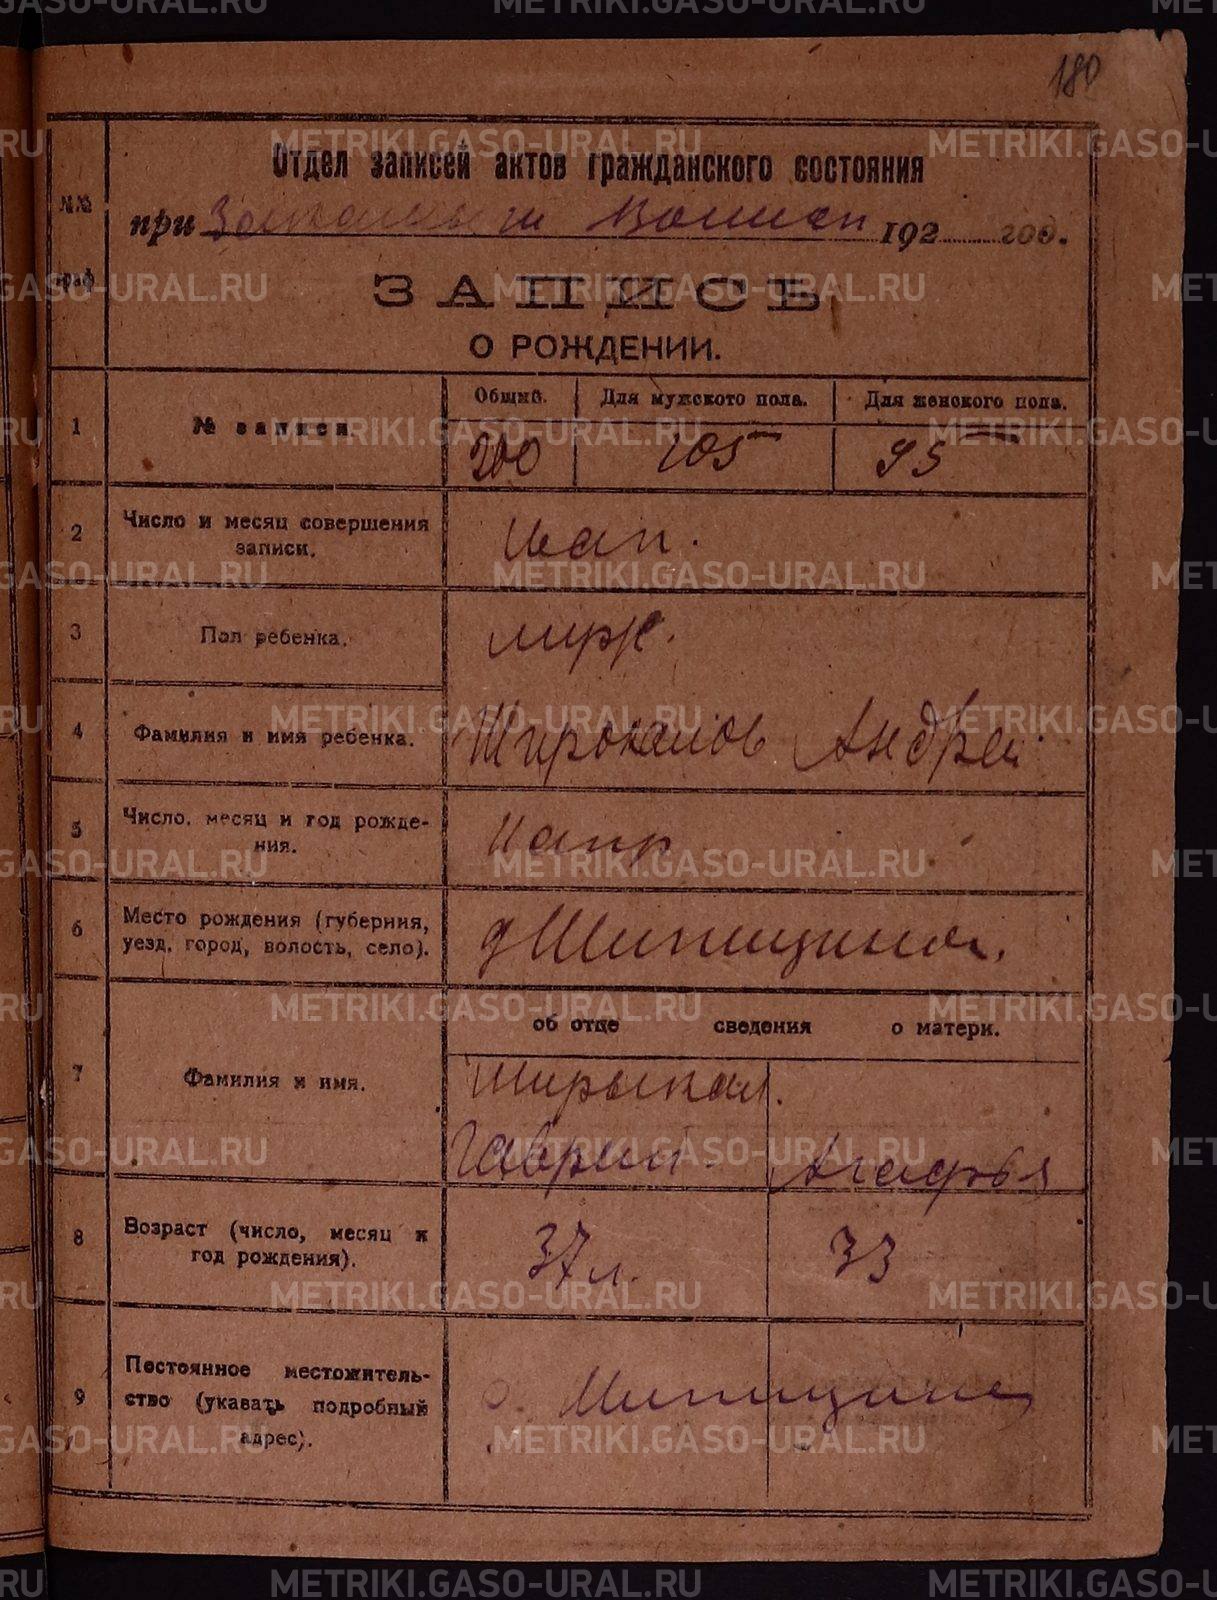 180
Отдел записей актов гражданского состояния
при Волисп 192 год.
№№ граф
ЗАПИСЬ
О РОЖДЕНИИ.
1 № записи Общий. Для мужского пола. Для женского пола.
200 105 95
2 Число и месяц совершения записи. 
3 Пол ребенка. муж.
4 Фамилия и имя ребенка. Широкалов Андрей
5 Число, месяц и год рождения.
6 Место рождения (губерния, уезд, город, волость, село). д Шипицина.
об отце сведения о матери.
7 Фамилия и имя. Широкал.
Гаврил. Агафья
8 Возраст (число, месяц и год рождения). 37 л. 33
9 Постоянное местожительство (указать подробный адрес). Шипицина
METRIKI.GASO-URAL.RU